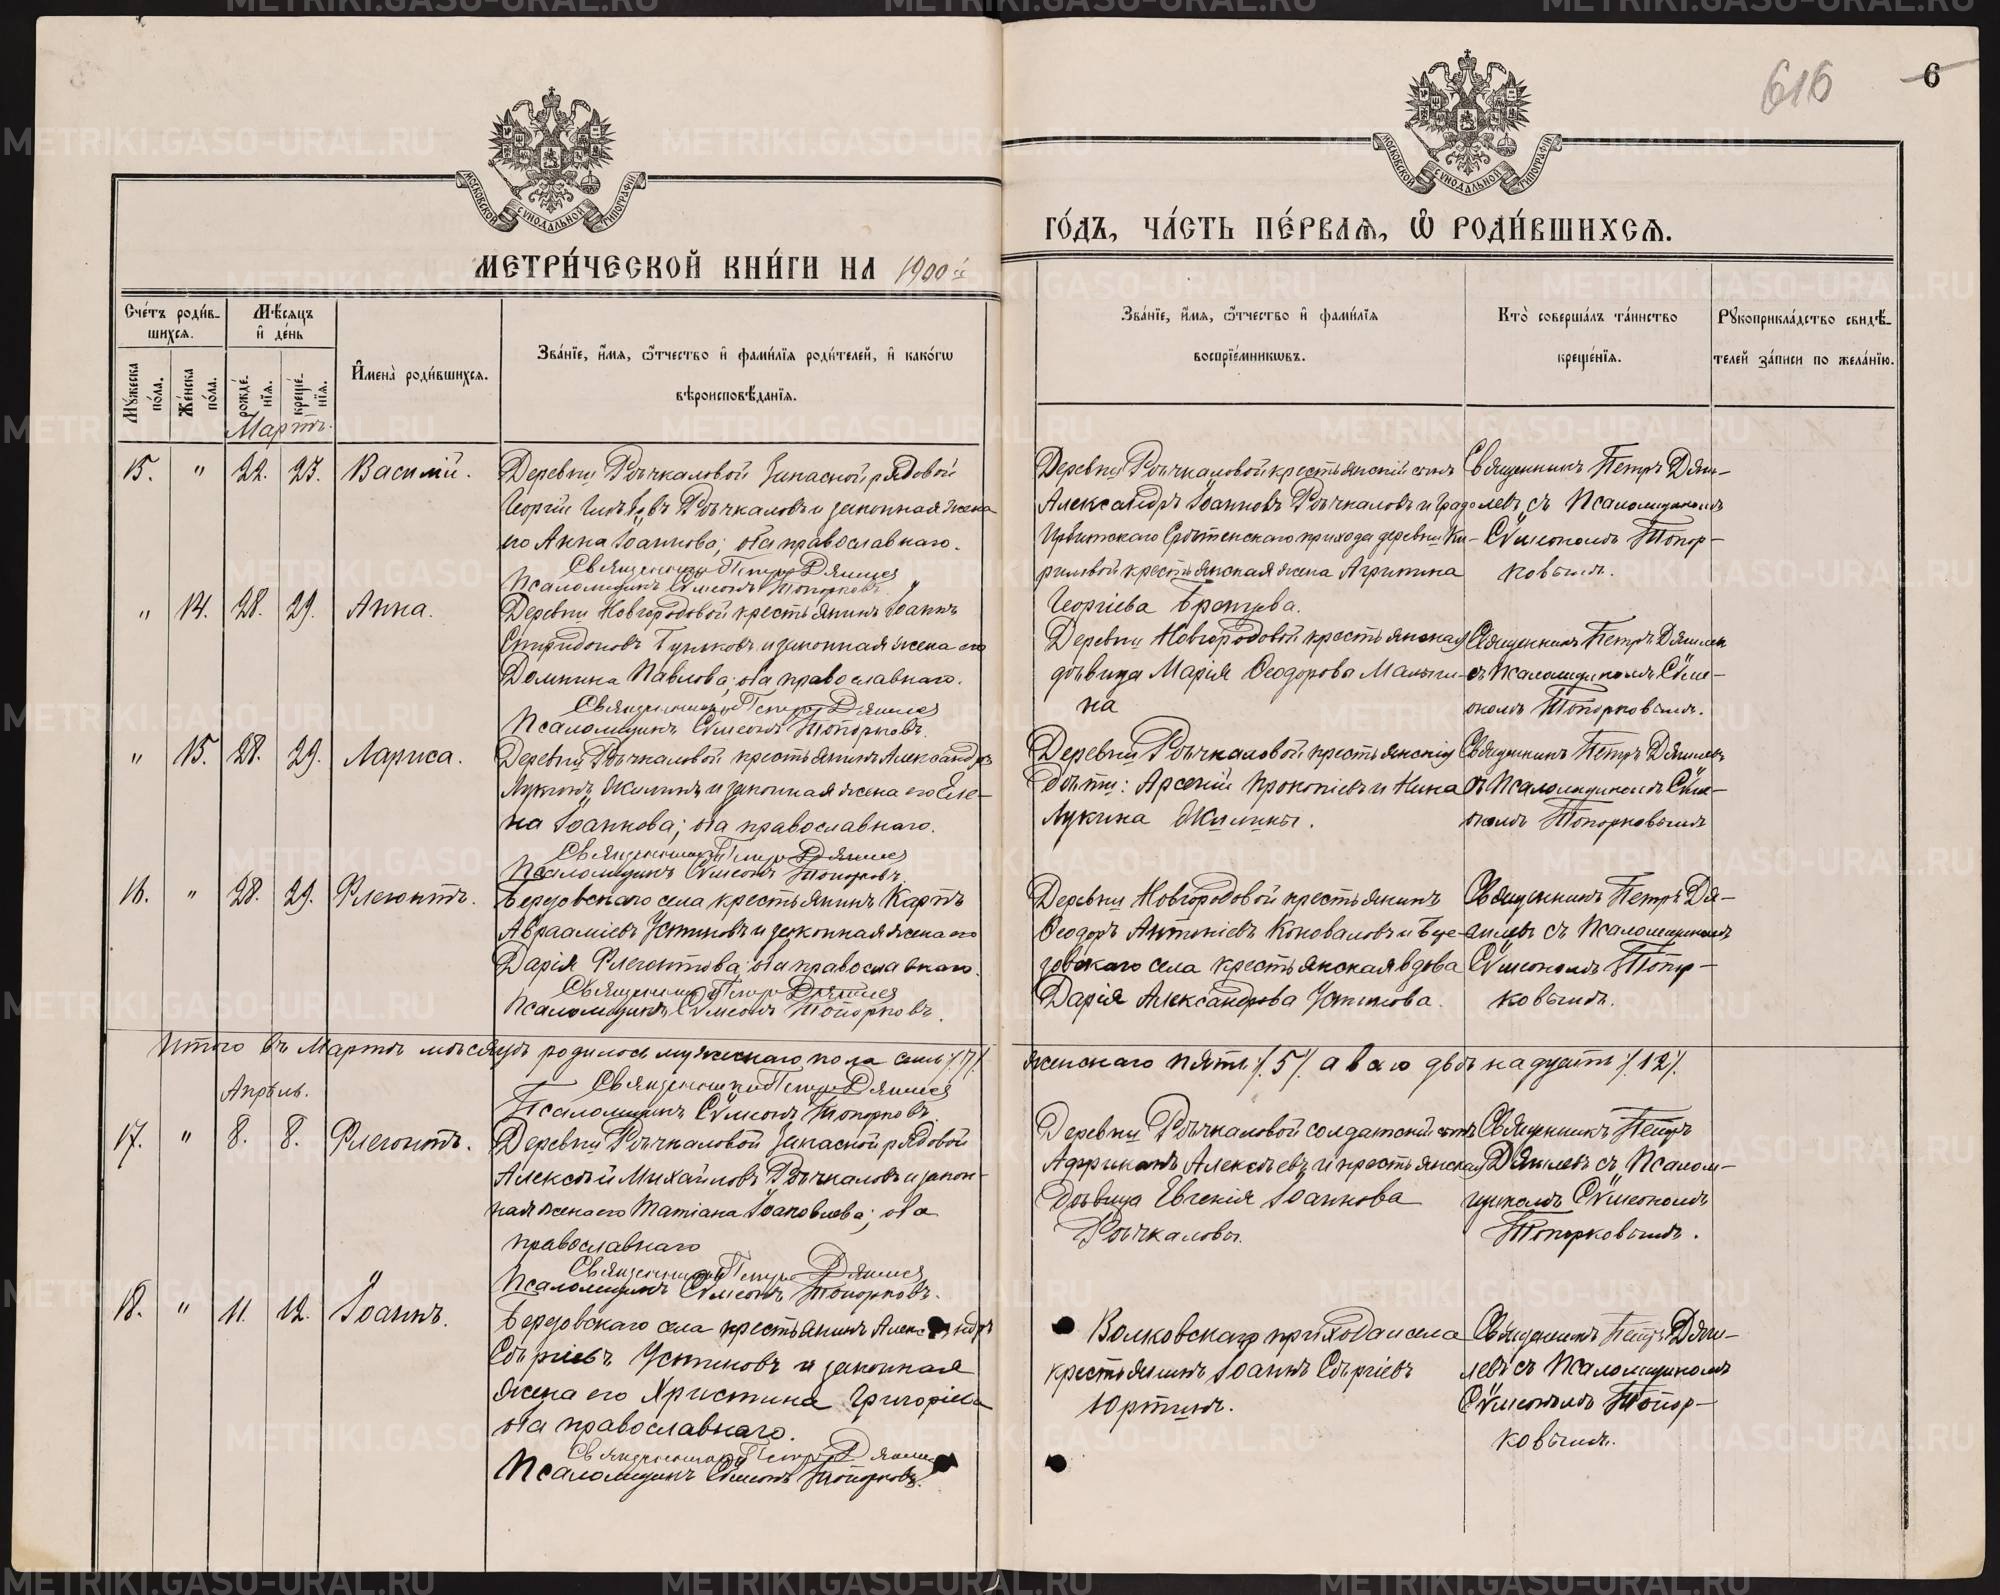 616
6
МОСКОВСКОЙ СѴНОДАЛЬНОЙ ТИПОГРАФІИ
МОСКОВСКОЙ СѴНОДАЛЬНОЙ ТИПОГРАФІИ
МЕТРИ́ЧЕСКОЙ КНИ́ГИ НА 1900й
ГО́ДЪ, ЧА́СТЬ ПЕ́РВАѦ, Ѡ҆ РОДИ́ВШИХСѦ.
Сче́тъ роди́в-
шихсѧ.
Мꙋ́жеска по́ла.
Же́нска по́ла.
Мѣ́сѧцъ
и҆ де́нь
рожде́-
нїѧ.
креще́-
нїѧ.
И҆мена̀ роди́вшихсѧ.
Зва́нїе, и҆́мѧ, ѻ҆́тчество и҆ фамі́лїѧ роди́телей, и҆ како́гѡ
вѣроисповѣ́данїѧ.
Зва́нїе, и҆́мѧ, ѻ҆́тчество и҆ фамі́лїѧ
воспрїе́мникѡвъ.
Кто̀ соверша́лъ та́инство
креще́нїѧ.
Рꙋкоприкла́дство свидѣ́-
телей за́писи по жела́нїю.
Мартъ.
15. " 22. 23. Василій.
Деревни Рѣчкаловой запасной рядовой
Георгій Рѣчкаловъ и законная жена
его Анна Іоаннова; оба православнаго.
Священникъ Петръ Дягилев
Псаломщикъ Сѵмеонъ Топорковъ.
Деревни Рѣчкаловой крестьянскій сынъ
Александръ Іоанновъ Рѣчкаловъ и градо
Ирбитскаго Срѣтенскаго прихода деревни Ки-
риловой крестьянская жена Агрипина
Георгіева
Священникъ Петръ Дяги-
левъ съ Псаломщикомъ
Сѵмеономъ Топор-
ковымъ.
" 14. 28. 29. Анна.
Деревни Новгородовой крестьянинъ Іоаннъ
Спиридоновъ и законная жена его
Домнина Павлова; оба православнаго.
Священникъ Петръ Дягилев
Псаломщикъ Сѵмеонъ Топорковъ.
Деревни Новгородовой крестьянская
дѣвица Марія Ѳеодорова Малыги-
на
Священникъ Петръ Дягилев
съ Псаломщикомъ Сѵме-
ономъ Топорковымъ.
" 15. 28. 29. Лариса.
Деревни Рѣчкаловой крестьянинъ Александръ
Лукинъ Жилинъ и законная жена его Еле-
на Іоаннова; оба православнаго.
Священникъ Петръ Дягилев
Псаломщикъ Сѵмеонъ Топорковъ.
Деревни Рѣчкаловой крестьянскія
дѣти: Арсеній Прокопіевъ и Нина
Лукина Жилины.
Священникъ Петръ Дягилевъ
съ Псаломщикомъ Сѵме-
ономъ Топорковымъ
16. " 28. 29. Флегонтъ.
Березовскаго села крестьянинъ Карпъ
Авраамiевъ Устиновъ и законная жена его
Дарія Флегонтова; оба православнаго.
Священникъ Петръ Дягилев
Псаломщикъ Сѵмеонъ Топорковъ.
Деревни Новгородовой крестьянинъ
Ѳеодоръ Антоніевъ Коноваловъ и Бере-
зовскаго села крестьянская вдова
Дарія Александрова Устинова.
Священникъ Петръ Дя-
гилевъ съ Псаломщикомъ
Сѵмеономъ Топор-
ковымъ.
Итого въ Мартѣ мѣсяцѣ родилось мужескаго пола семь /7/. женскаго пять /.5/. а всего двѣнадцать /.12/.
Священникъ Петръ Дягилев
Псаломщикъ Сѵмеонъ Топорковъ
Апрѣль.
17. " 8. 8. Флегонтъ.
Деревни Рѣчкаловой запасной рядовой
Алексѣй Михайловъ Рѣчкаловъ и закон-
ная жена его Татіана Іаковлева; оба
православнаго
Священникъ Петръ Дягилев
Псаломщикъ Сѵмеонъ Топорковъ.
Деревни Рѣчкаловой солдатскій сынъ
Африканъ Алексѣевъ и крестьянская
дѣвица Евгенія Іоаннова
Рѣчкаловы.
Священникъ Петръ
Дягилевъ съ Псалом-
щикомъ Сѵмеономъ
Топорковымъ.
18. " 11. 12. Іоаннъ.
Березовскаго села крестьянинъ Александръ
Сергіевъ Устиновъ и законная
жена его Христина Григоріева
оба православнаго.
Священникъ Петръ Дягилев
Псаломщикъ Сѵмеонъ Топорковъ.
Волковскаго прихода и села
крестьянинъ Іоаннъ Сергіевъ
Юртинъ.
Священникъ Петръ Дяги-
левъ съ Псаломщикомъ
Сѵмеономъ Топор-
ковымъ.
METRIKI.GASO-URAL.RU